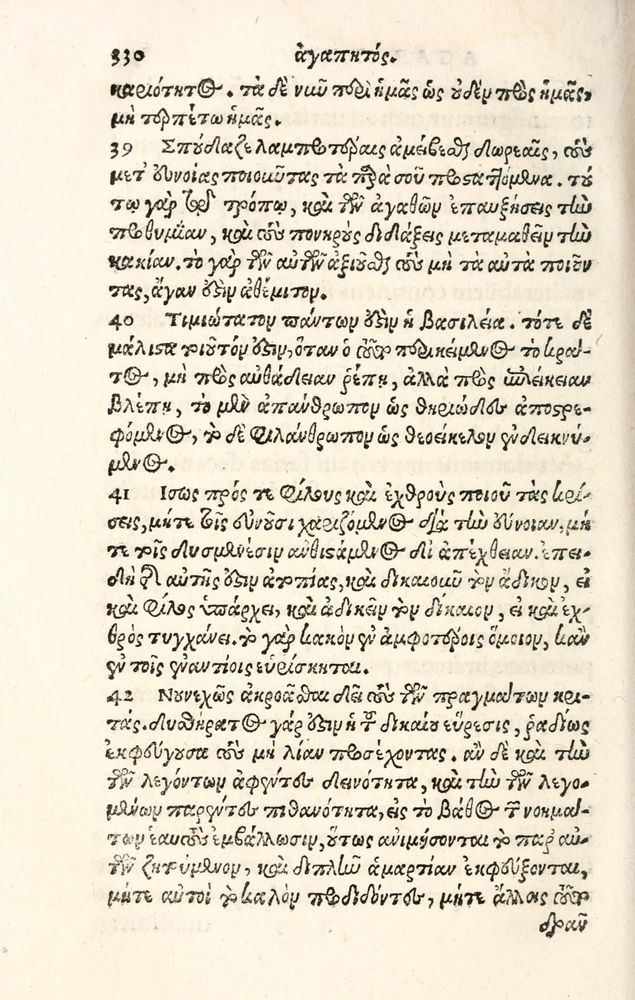 330 ἀγαπητός.
καιότητος. τὰ δὲ νῦν περὶ ἡμᾶς ὡς οὐδὲν πρὸς ἡμᾶς,
μὴ τερπέτω ἡμᾶς.
39 Σπούδαζε λαμπροτέραις ἀμείβεσθαι δωρεαῖς, τοὺς
μετ' εὐνοίας ποιοῦντας τὰ παρὰ σοῦ προσταττόμενα. τού
τῳ γὰρ τῷ τρόπῳ, καὶ τῶν ἀγαθῶν ἐπαυξήσεις τὴν
προθυμίαν, καὶ τοὺς πονηροὺς διδάξεις μεταμαθεῖν τὴν
κακίαν. τὸ γὰρ τῶν αὐτῶν ἀξιοῦσθαι τοὺς μὴ τὰ αὐτὰ ποιοῦν
τας, ἄγαν ἐστὶν ἀθέμιτον.
40 Τιμιώτατον πάντων ἐστὶν ἡ βασιλεία. τότε δὲ
μάλιστα τοιοῦτόν ἐστιν, ὅταν ὁ τοῦτο περικείμενος τὸ κρά-
τος, μὴ πρὸς αὐθάδειαν ῥέπῃ, ἀλλὰ πρὸς ἐπιείκειαν
βλέπῃ, τὸ μὲν ἀπάνθρωπον ὡς θηριῶδες ἀποστρε-
φόμενος, τὸ δὲ φιλάνθρωπον ὡς θεοείκελον ἐνδεικνύ-
μενος.
41 Ἴσως πρός τε φίλους καὶ ἐχθροὺς ποιοῦ τὰς κρί-
σεις, μήτε τοῖς εὐνοῦσι χαριζόμενος διὰ τὴν εὔνοιαν, μή
τε τοῖς δυσμενέσιν ἀνθιστάμενος δι' ἀπέχθειαν. ἐπει-
δὴ τῆς αὐτῆς ἐστιν ἀτοπίας, καὶ δικαιοῦν τὸν ἄδικον, εἰ
καὶ φίλος ὑπάρχει, καὶ ἀδικεῖν τὸν δίκαιον, εἰ καὶ ἐχ-
θρὸς τυγχάνει. τὸ γὰρ κακὸν ἐν ἀμφοτέροις ὅμοιον, κἂν
ἐν τοῖς ἐναντίοις εὑρίσκηται.
42 Νουνεχῶς ἀκροᾶσθαι δεῖ τοὺς τῶν πραγμάτων κρι-
τάς. δυσθήρατος γάρ ἐστιν ἡ τοῦ δικαίου εὕρεσις, ῥαδίως
ἐκφεύγουσα τοὺς μὴ λίαν προσέχοντας. ἂν δὲ καὶ τὴν
τῶν λεγόντων ἀφέντες δεινότητα, καὶ τὴν τῶν λεγο-
μένων παρέντες πιθανότητα, εἰς τὸ βάθος τῶν νοημά-
των ἑαυτοὺς ἐμβάλλωσιν, οὕτως ἀνιμήσονται τὸ παρ' αὐ-
τῶν ζητούμενον, καὶ διπλῆν ἁμαρτίαν ἐκφεύξονται,
μήτε αὐτοὶ τὸ καλὸν προδιδόντες, μήτε ἄλλοις τοῦτο
δρᾶν